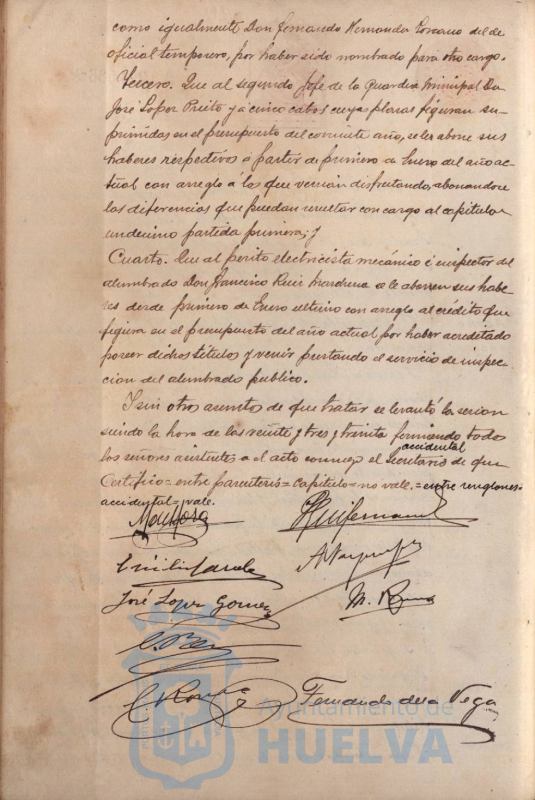 como igualmente Don Fernando Hernandez Lozano del de
oficial temporero, por haber sido nombrado para otro cargo.
Tercero. Que al segundo Jefe de la Guardia Municipal Don
José Lopez Prieto y a cinco cabos cuyas plazas figuran su-
primidas en el presupuesto del corriente año, se les abone sus
haberes respectivos a partir de primero de Enero del año ac-
tual con arreglo á los que venian disfrutando, abonandose
las diferencias que puedan resultar con cargo al capitulo
undecimo partida primera; y
Cuarto. Que al perito electricista mecánico é inspector del
alumbrado Don Francisco Ruiz se le abonen sus habe-
res desde primero de Enero ultimo con arreglo al crédito que
figura en el presupuesto del año actual por haber acreditado
poseer dichos titulos y venir prestando el servicio de inspec-
cion del alumbrado publico.
Y sin otros asuntos de que tratar se levantó la sesion
siendo la hora de las veinte y tres y treinta firmando todos
accidental
los señores asistentes a el acto conmigo el Secretario de que
Certifico = entre parentesis = capitulo = no vale. = entre renglones =
accidental = vale.
José Lopez Gomez
Fernando de la Vega
Ayuntamiento de
HUELVA